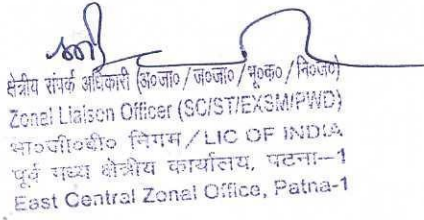 क्षेत्रीय संपर्क अधिकारी (अ०जा० / ज०जा० / भू०क० / नि०ज०)
Zonal Liaison Officer (SC/ST/EXSM/PWD)
भा०जी०बी० निगम / LIC OF INDIA
पूर्व मध्य क्षेत्रीय कार्यालय, पटना–1
East Central Zonal Office, Patna-1